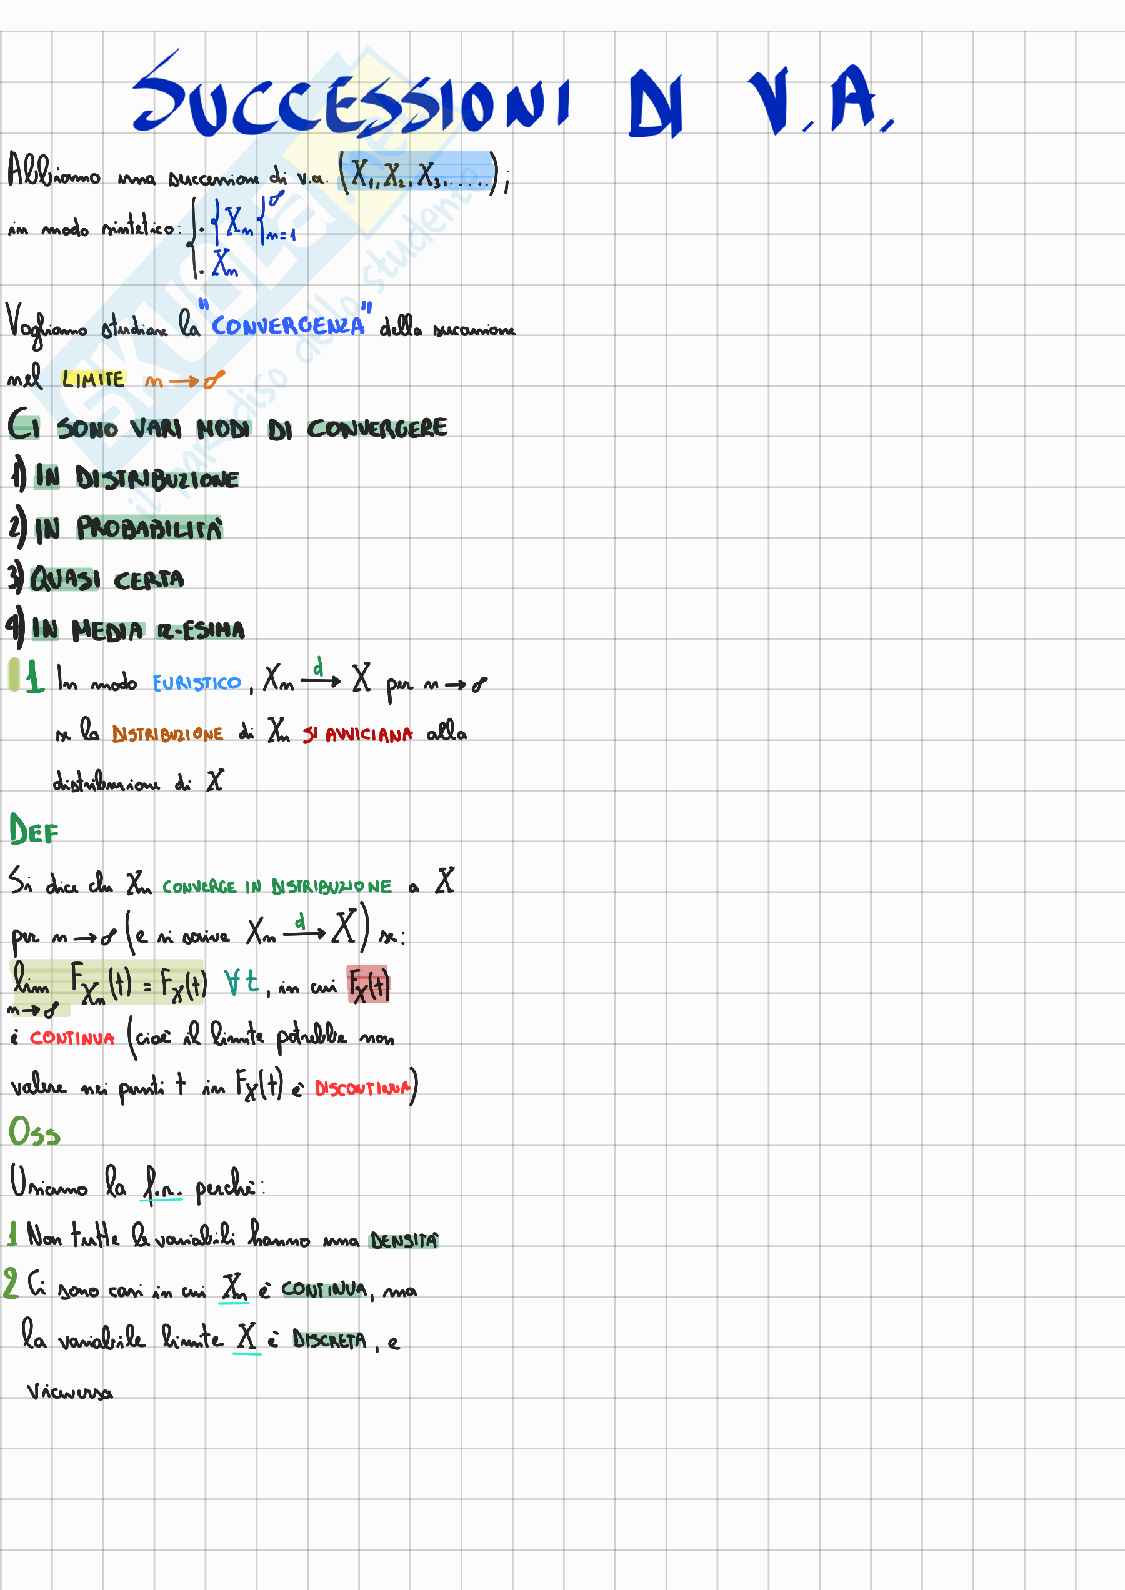 SUCCESSIONI DI V.A.
Abbiamo una successione di v.a. (X₁, X₂, X₃, .....);
in modo sintetico: { . {Xₙ}ₙ₌₁^∞
. Xₙ
Vogliamo studiare la "CONVERGENZA" della successione
nel LIMITE n → ∞
CI SONO VARI MODI DI CONVERGERE
1) IN DISTRIBUZIONE
2) IN PROBABILITÀ
3) QUASI CERTA
4) IN MEDIA R-ESIMA
1 In modo EURISTICO, Xₙ →ᵈ X per n → ∞
se la DISTRIBUZIONE di Xₙ SI AVVICIANA alla
distribuzione di X
DEF
Si dice che Xₙ CONVERGE IN DISTRIBUZIONE a X
per n → ∞ (e si scrive Xₙ →ᵈ X) se:
lim F_Xₙ(t) = F_X(t) ∀t, in cui F_X(t)
n → ∞
è CONTINUA (cioè il limite potrebbe non
valere nei punti t in F_X(t) è DISCONTINUA)
OSS
Usiamo la f.r. perchè:
1 Non tutte le variabili hanno una DENSITÀ
2 Ci sono casi in cui Xₙ è CONTINUA, ma
la variabile limite X è DISCRETA, e
viceversa
SKUOLA.net
il paradiso dello studente